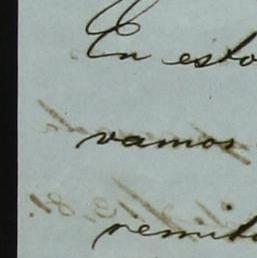 En esto
vamos
remito